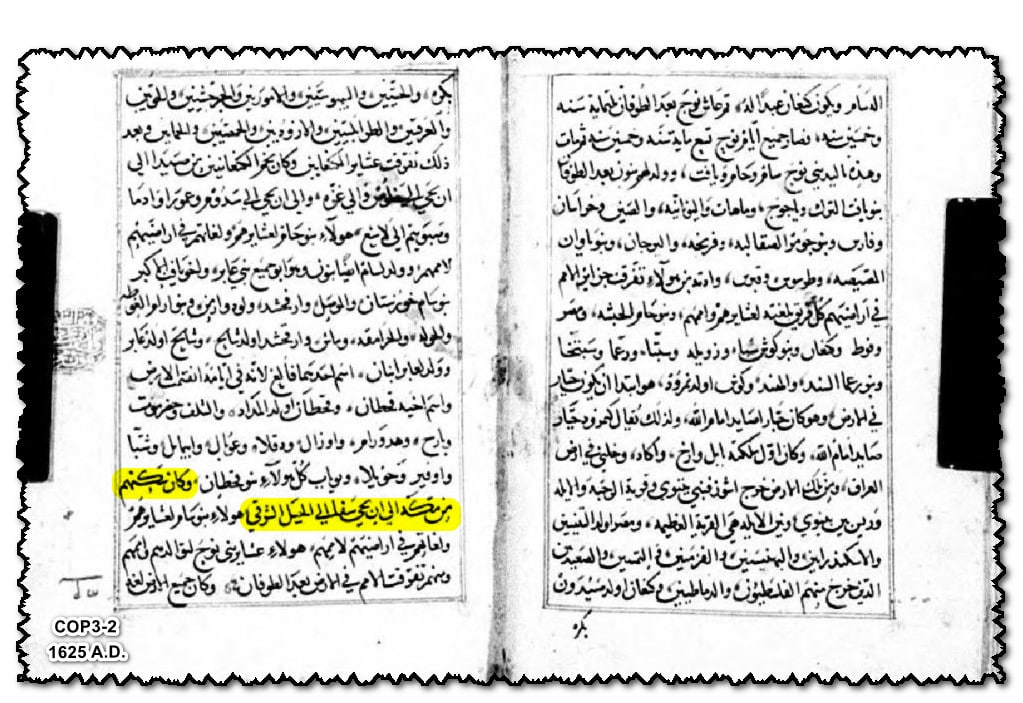 السام ويكون كنعان عبدا له، ثم عاش نوح بعد الطوفان ثلثماية سنه
وخمسين سنه، فصار جميع ايام نوح تسع مايه سنه وخمسين سنه ثم مات
وهذه تاليد بني نوح سام وحام ويافت، وولد لهم بنون بعد الطوفان
بنو يافت الترك وياجوج، وماهات واليونانيه، والصين وخراسان
وفارس وبنو جومر الصقالبه، وفرنجه، والبرجان، وبنو ياوان
المصيصه، وطرسوس وقبرس، وادنه من هولاء تفرقت جزاير الامم
في اراضيهم كل فريق بلغته لعشايرهم واممهم، وبنو حام الحبشه، ومصر
وفوط وكنعان وبنو كوش سبا، وزويله وسبتا، ورعما وسبتخا
وبنو رعما السند، والهند، وكوش اولد نمرود، هو ابتدا ان يكون جبار
في الارض وهو كان جبار اصايد امام الله، ولذلك يقال كنمرود جبار
صايد امام الله، وكان اول مملكته بابل وارخ، واكاد، وخلني في ارض
العراق، ومن تلك الارض خرج اشور فبني ننوي وقرية الرحبة والابله
ومدين بين ننوي وبين الابله هي القرية العظيمه، ومصر اولد التنيسيين
والاسكندرانيين والبهنسيين، والفرميين والصعيديين
الذين خرج منهم الفلسطيون والدمياطيين وكنعان اولد صيدون
بكره
بكره، والحثيين واليبوسيين والامورين والجرجشيين والحويين
والعرقيين والطرابلسيين والاروديين والحمصيين، والحماين وبعد
ذلك تفرقت عشاير الكنعانيين وكان تخم الكنعانيين من صيدا الى
ان تجي الى الخلوص والى غزه، والى ان تجي الى سدوم وعمورا وادما
وصبويم الى لاشع، هولاء بنو حام لعشايرهم ولغاتهم في اراضيهم
لاممهم، وولد لسام ايضا بنون وهو ابو جميع بني عابر، واخو يافت الاكبر
بنو سام خوزستان والموصل وارفخشد، ولود وارمن وبنو ارام الغوطه
والحوله، والجرامقه، وماش، وارفخشد اولد شالح، وشالح اولد عابر
وولد لعابر ابنان، اسم احدهما فالغ لانه في ايامه انقسمت الارض
واسم اخيه قحطان، وقحطان اولد المداد، والسلف وحضرموت
ويارح، وهدورام، واوزال، ودقلا، وعوبال، وابيمايل، وشبا
واوفير وحويلا، ويوباب كل هولاء بنو قحطان، وكان مسكنهم
من مكه الى ان تجي سفلى الى الجبل الشرقي، هولاء بنو سام لعشايرهم
ولغاتهم في اراضيهم لاممهم، هولاء عشاير بني نوح لتواليدهم لاممهم
ومنهم تفرقت الامم في الارض بعد الطوفان، وكان جميع الارض لغه
COP3-2
1625 A.D.